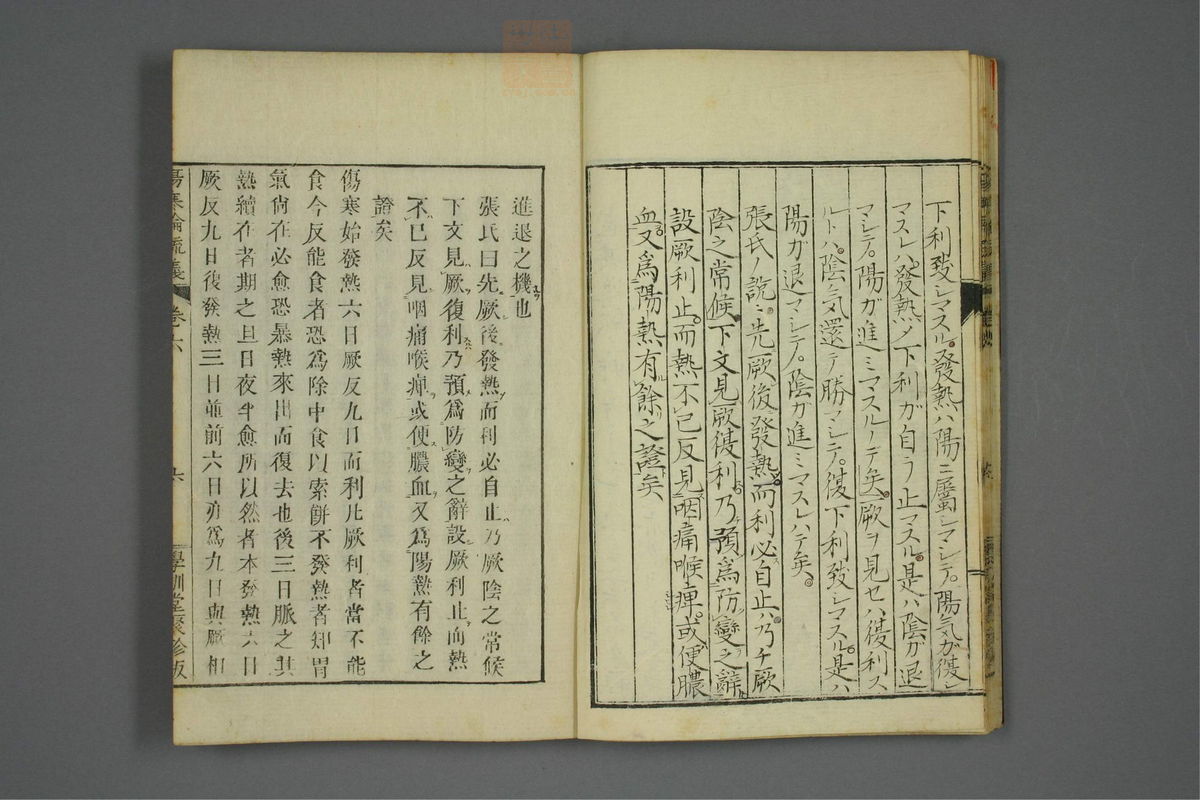 下利致シマスル。發熱ハ陽ニ屬シマシテ。陽気ガ復シ
マスレハ、發熱ノ下利ガ自ラ止マスル。是ハ陰ガ退
マシテ。陽ガ進ミマスルノテ矣。厥ヲ見セハ復利ス
ルトハ。陰気還テ勝ノシテ。復下利致シマスル。是ハ
陽ガ退マシテ。陰ガ進ミマスレハテ矣。
張氏ノ説ニ先厥後發熱。而利必自止ハ乃チ厥
陰之常候。下文見厥復利。乃預為防變之辭
設厥利止。而熱不已反見咽痛喉痺。或便膿
血。又為陽熱有餘之證矣
進退之機也
張氏曰先厥後發熱而利必自止乃厥陰之常候
下文見厥復利乃預爲防變之辭設厥利止而熱
不已反見咽痛喉痺或便膿血又爲陽熱有餘之
證矣
傷寒始發熱六日厥反九日而利凡厥利者當不能
食今反能食者恐爲除中食以索餅不發熱者知胃
氣尙在必愈恐暴熱來出而復去也後三日脈之其
熱續在者期之旦日夜半愈所以然者本發熱六日
厥反九日復發熱三日並前六日亦爲九日與厥相
傷寒論疏義 卷六 六 學訓堂聚珍版